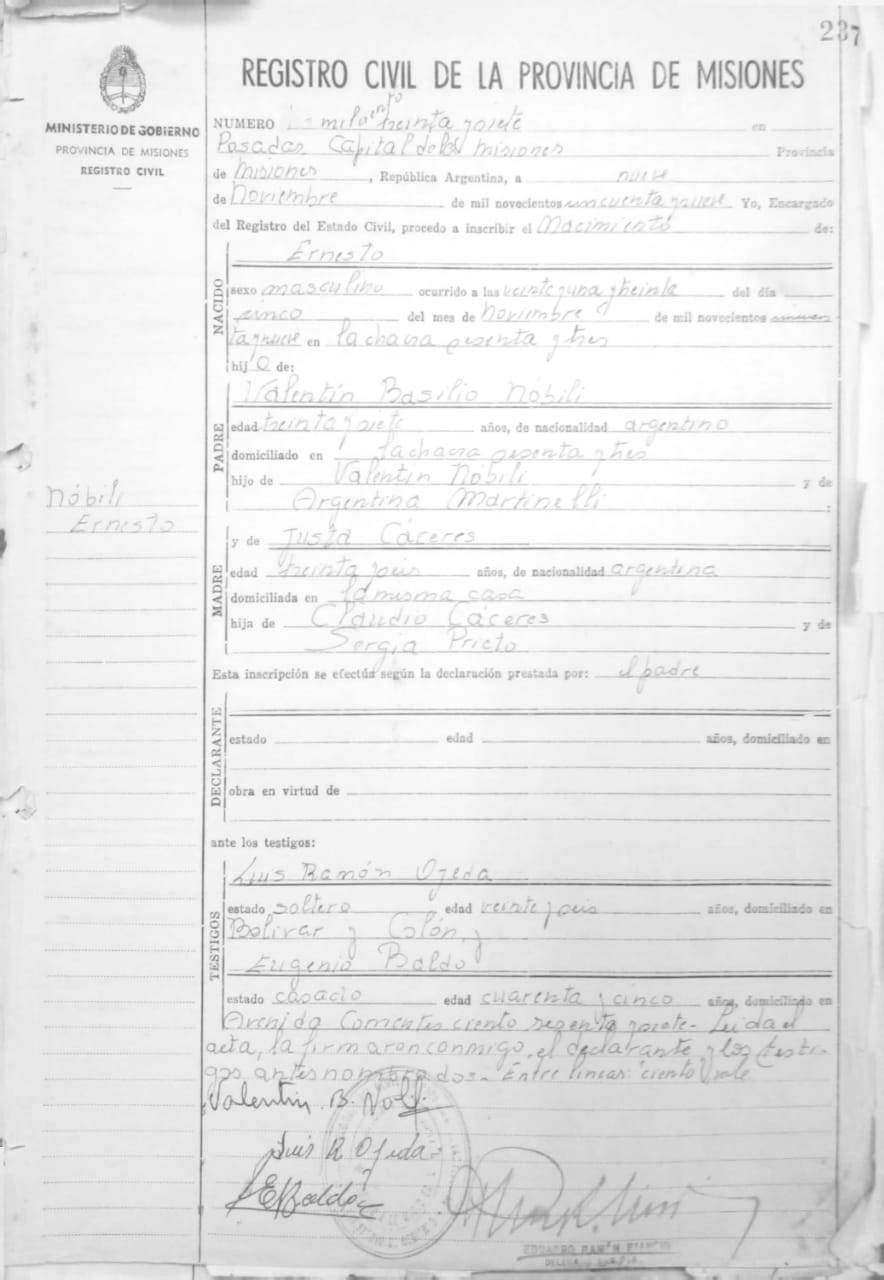 237
REGISTRO CIVIL DE LA PROVINCIA DE MISIONES
MINISTERIO DE GOBIERNO
PROVINCIA DE MISIONES
REGISTRO CIVIL
ciento
NUMERO mil treinta y siete en
Posadas Capital de Misiones Provincia
de Misiones, República Argentina, a nueve
de Noviembre de mil novecientos cincuenta y nueve Yo, Encargado
del Registro del Estado Civil, procedo a inscribir el Nacimiento de:
NACIDO
Ernesto
sexo masculino ocurrido a las veinte y una y treinta del día
cinco del mes de Noviembre de mil novecientos cincuen
ta y nueve en la chacra sesenta y tres
hijo de:
PADRE
Valentín Basilio Nóbili
edad treinta y siete años, de nacionalidad argentino
domiciliado en la chacra sesenta y tres
hijo de Valentín Nóbili y de
Argentina Martinelli
Nóbili
Ernesto
MADRE
y de Justa Cáceres
edad treinta y seis años, de nacionalidad argentina
domiciliada en la misma casa
hija de Claudio Cáceres y de
Sergia Prieto
Esta inscripción se efectúa según la declaración prestada por: el padre
DECLARANTE
estado edad años, domiciliado en
obra en virtud de
ante los testigos:
TESTIGOS
Luis Ramón Ojeda
estado soltero edad veinte y seis años, domiciliado en
Bolívar y Colón, y
Eugenio Baldó
estado casado edad cuarenta y cinco años, domiciliado en
Avenida Corrientes ciento sesenta y siete- Leida el
acta, la firmaron conmigo, el declarante y los testi-
gos antes nombrados.- Entre lineas: ciento: vale
Valentin B. Nobili
Luis R Ojeda
E Baldó